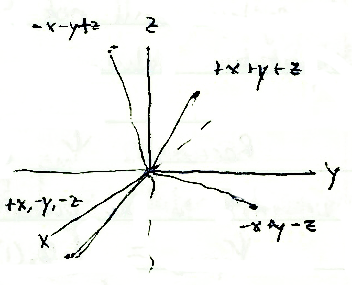 -x-y+z
z
+x+y+z
y
+x,-y,-z
x
-x+y-z